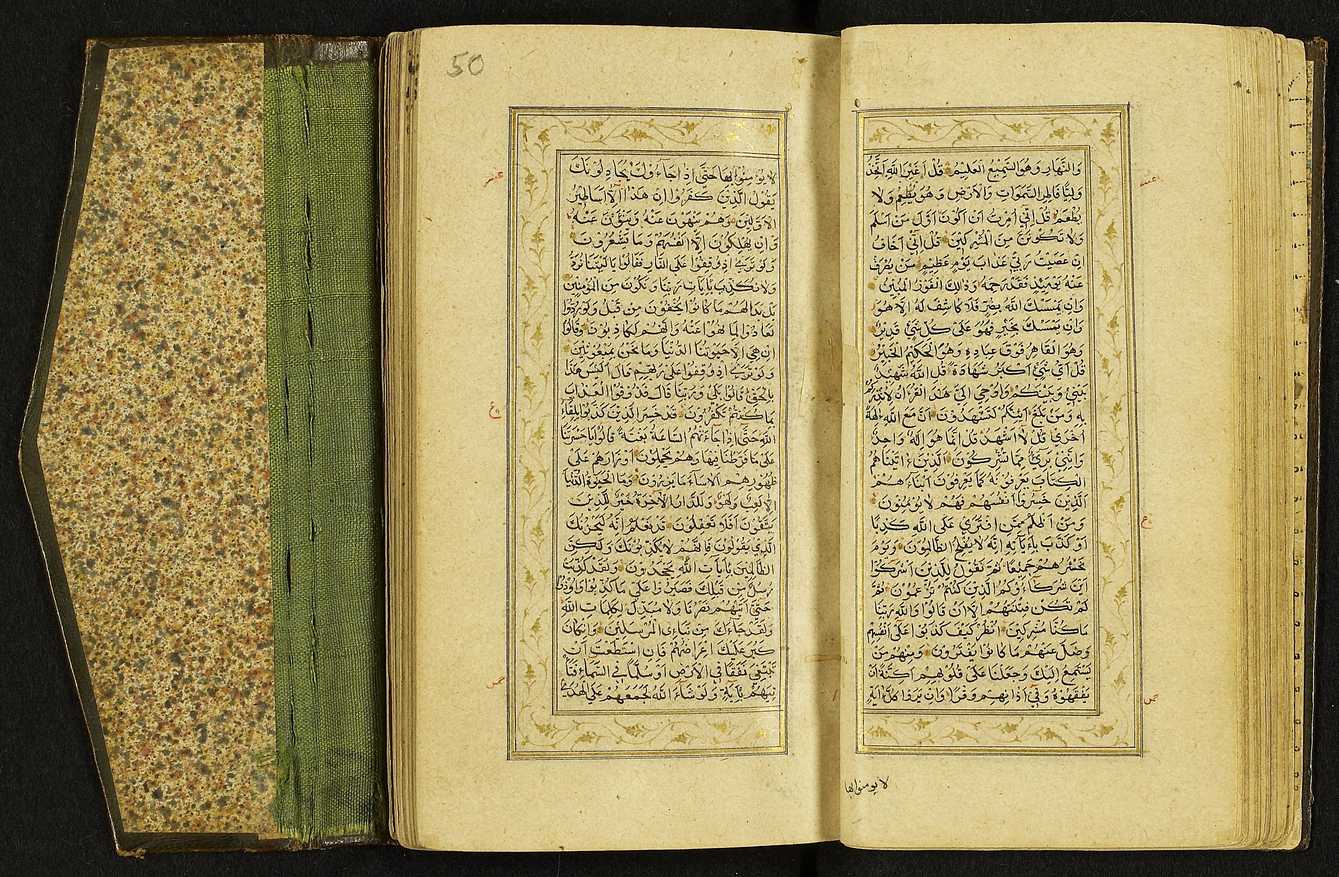 والنهار وهو السميع العليم قل اغير الله اتخذ
وليا فاطر السموات والارض وهو يطعم ولا
يطعم قل اني امرت ان اكون اول من اسلم
ولا تكونن من المشركين قل اني اخاف
ان عصيت ربي عذاب يوم عظيم من يصرف
عنه يومئذ فقد رحمه وذلك الفوز المبين
وان يمسسك الله بضر فلا كاشف له الا هو
وان يمسسك بخير فهو على كل شئ قدير
وهو القاهر فوق عباده وهو الحكيم الخبير
قل اي شئ اكبر شهادة قل الله شهيد
بيني وبينكم واوحي الي هذا القران لانذركم
به ومن بلغ ائنكم لتشهدون ان مع الله الهة
اخرى قل لا اشهد قل انما هو اله واحد
وانني برئ مما تشركون الذين اتيناهم
الكتاب يعرفونه كما يعرفون ابناءهم
الذين خسروا انفسهم فهم لا يؤمنون
ومن اظلم ممن افترى على الله كذبا
او كذب باياته انه لا يفلح الظالمون ويوم
نحشرهم جميعا ثم نقول للذين اشركوا
اين شركاؤكم الذين كنتم تزعمون ثم
لم تكن فتنتهم الا ان قالوا والله ربنا
ما كنا مشركين انظر كيف كذبوا على انفسهم
وضل عنهم ما كانوا يفترون ومنهم من
يستمع اليك وجعلنا على قلوبهم اكنة ان
يفقهوه وفي اذانهم وقرا وان يروا كل اية
لا يومنوا بها
50
لا يؤمنوا بها حتى اذا جاؤك يجادلونك
يقول الذين كفروا ان هذا الا اساطير
الاولين وهم ينهون عنه وينؤن عنه
وان يهلكون الا انفسهم وما يشعرون
ولو ترى اذ وقفوا على النار فقالوا يا ليتنا نرد
ولا نكذب بايات ربنا ونكون من المؤمنين
بل بدا لهم ما كانوا يخفون من قبل ولو ردوا
لعادوا لما نهوا عنه وانهم لكاذبون وقالوا
ان هي الا حيوتنا الدنيا وما نحن بمبعوثين
ولو ترى اذ وقفوا على ربهم قال اليس هذا
بالحق قالوا بلى وربنا قال فذوقوا العذاب
بما كنتم تكفرون قد خسر الذين كذبوا بلقاء
الله حتى اذا جاءتهم الساعة بغتة قالوا يا حسرتنا
على ما فرطنا فيها وهم يحملون اوزارهم على
ظهورهم الا ساء ما يزرون وما الحيوة الدنيا
الا لعب ولهو وللدار الاخرة خير للذين
يتقون افلا تعقلون قد نعلم انه ليحزنك
الذي يقولون فانهم لا يكذبونك ولكن
الظالمين بايات الله يجحدون ولقد كذبت
رسل من قبلك فصبروا على ما كذبوا واوذوا
حتى اتيهم نصرنا ولا مبدل لكلمات الله
ولقد جاءك من نبائ المرسلين وان كان
كبر عليك اعراضهم فان استطعت ان
تبتغي نفقا في الارض او سلما في السماء فتا
تيهم باية ولو شاء الله لجمعهم على الهدى